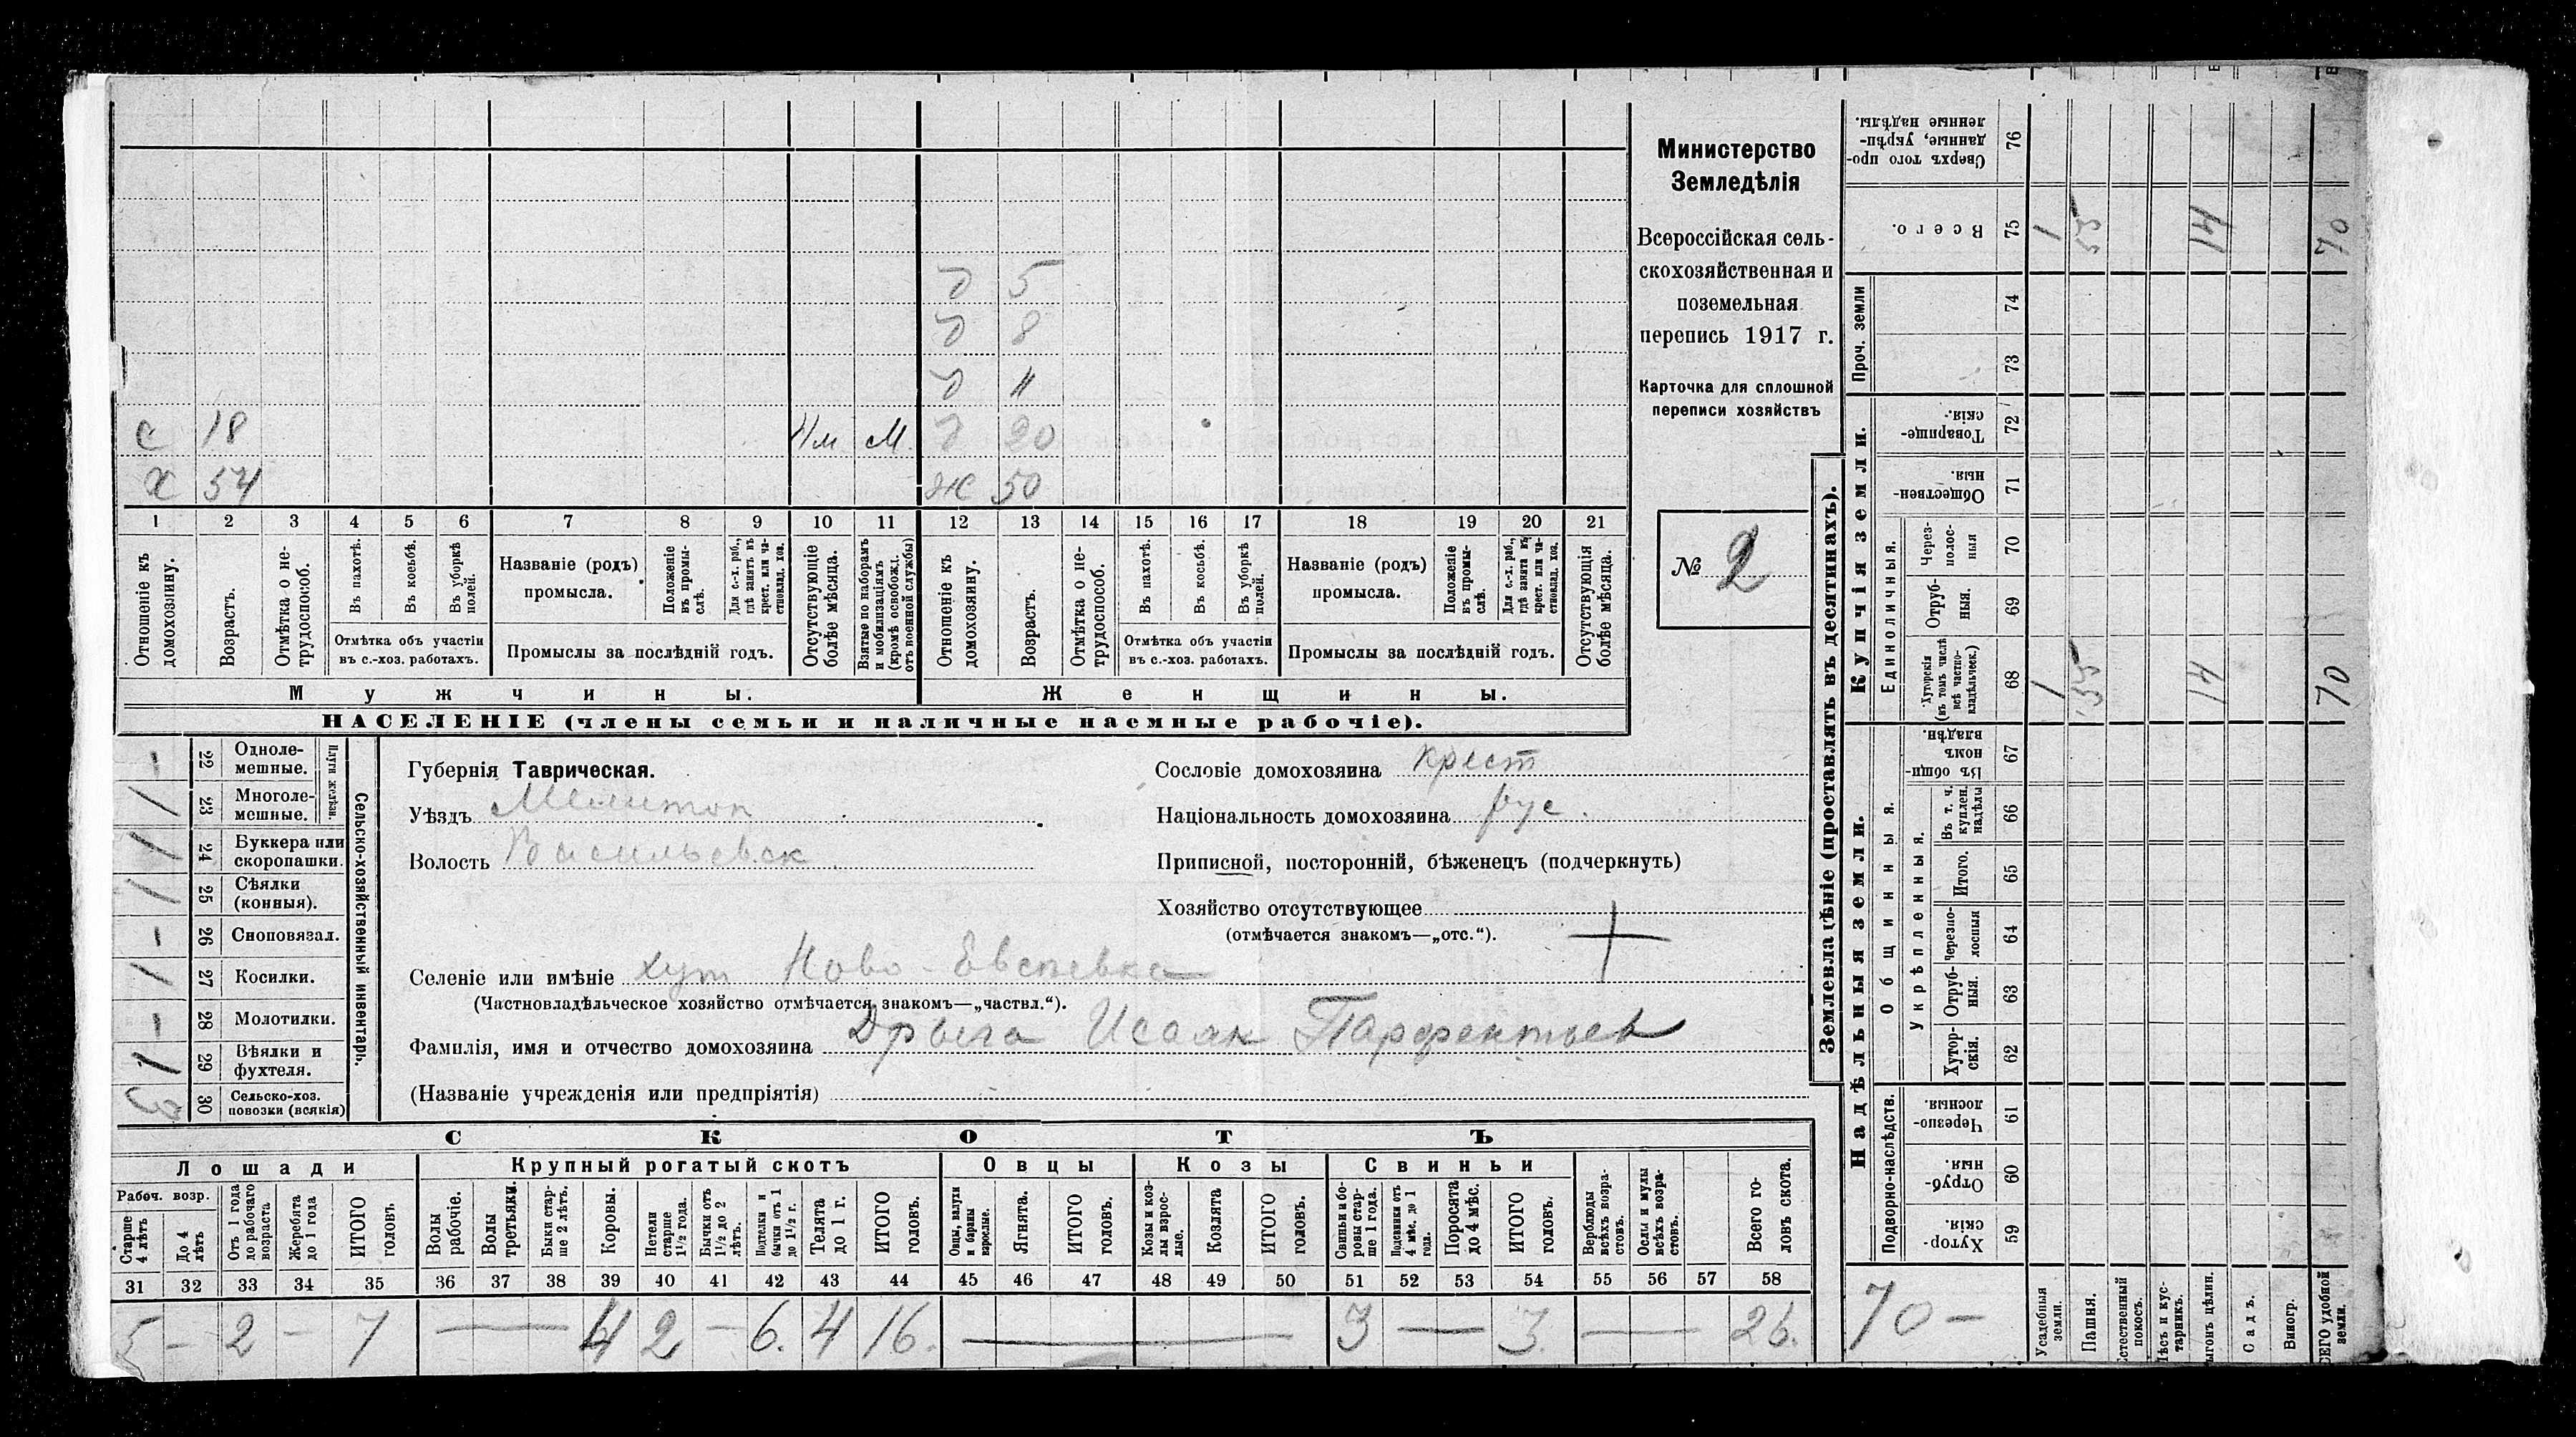 Министерство
Земледѣлія
Всероссійская сель-
скохозяйственная и
поземельная
перепись 1917 г.
Карточка для сплошной
переписи хозяйствъ
№ 2
д 5
д 8
д 11
с 18 м. д 20
х 54 ж 50
1 2 3 4 5 6 7 8 9 10 11 12 13 14 15 16 17 18 19 20 21
Отношеніе къ домохозяину.
Возрастъ.
Отмѣтка о не-трудоспособ.
Въ пахотѣ.
Въ косьбѣ.
Въ уборкѣ полей.
Отмѣтка объ участіи
въ с.-хоз. работахъ.
Названіе (родъ)
промысла.
Положеніе въ промы-слѣ.
Для с.-х. раб., гдѣ занятъ въ крест. или ча-стновлад. хоз.
Промыслы за послѣдній годъ.
Отсутствующіе болѣе мѣсяца.
Взятые по наборамъ и мобилизаціямъ (кромѣ освобожд. отъ военной службы)
Отношеніе къ домохозяину.
Возрастъ.
Отмѣтка о не-трудоспособ.
Въ пахотѣ.
Въ косьбѣ.
Въ уборкѣ полей.
Отмѣтка объ участіи
въ с.-хоз. работахъ.
Названіе (родъ)
промысла.
Положеніе въ промы-слѣ.
Для с.-х. раб., гдѣ занята въ крест. или ча-стновлад. хоз.
Промыслы за послѣдній годъ.
Отсутствующія болѣе мѣсяца.
Мужчины. Женщины.
НАСЕЛЕНІЕ (члены семьи и наличные наемные рабочіе).
Сельско-хозяйственный инвентарь.
Плуги желѣзн.
- 22 Одноле-мешные.
1 23 Многоле-мешные.
1 24 Буккера или скоропашки.
1 25 Сѣялки (конныя).
- 26 Сноповязал.
1 27 Косилки.
- 28 Молотилки.
1 29 Вѣялки и фухтеля.
3 30 Сельско-хоз. повозки (всякія)
Губернія Таврическая.
Уѣздъ Мелитоп
Волость Васильевск
Сословіе домохозяина крест
Національность домохозяина рус.
Приписной, посторонній, бѣженецъ (подчеркнуть)
Хозяйство отсутствующее
(отмѣчается знакомъ—„отс.“).
Селеніе или имѣніе хут Ново-
(Частновладѣльческое хозяйство отмѣчается знакомъ—„частвл.“).
Фамилія, имя и отчество домохозяина Дрыга Исаак Парфентьев
(Названіе учрежденія или предпріятія)
СКОТЪ
Лошади Крупный рогатый скотъ Овцы Козы Свиньи
Рабоч. возр.
Старше 4 лѣтъ
До 4 лѣтъ
Отъ 1 года до рабочаго возраста
Жеребята до 1 года
ИТОГО головъ.
Волы рабочіе.
Волы третьяки.
Быки стар-ше 2 лѣтъ.
Коровы.
Нетели старше 1½ года.
Бычки отъ 1½ до 2 лѣтъ.
Подтелки и бычки отъ 1 до 1½ г.
Телята до 1 г.
ИТОГО головъ.
Овцы, валухи и бараны взрослые.
Ягнята.
ИТОГО головъ.
Козы и коз-лы взрос-лые.
Козлята
ИТОГО головъ.
Свиньи и бо-ровы стар-ше 1 года.
Подсвинки отъ 4 мѣс. до 1 года.
Поросята до 4 мѣс.
ИТОГО головъ.
Верблюды всѣхъ возра-стовъ.
Ослы и мулы всѣхъ возра-стовъ.
Всего го-ловъ скота.
31 32 33 34 35 36 37 38 39 40 41 42 43 44 45 46 47 48 49 50 51 52 53 54 55 56 57 58
5 - 2 - 7 — 4 2 - 6. 4 16. — 3 — 3. — 26.
Землевладѣніе (проставлять въ десятинахъ).
Купчія земли.
Надѣльныя земли.
Сверхъ того про-данные, укрѣп-ленные надѣлы. 76
Всего. 75 1 55 14 70
Проч. земли
74
73
Товарище-скія. 72
Обществен-ныя. 71
Единоличныя.
Через-полос-ныя 70
Отруб-ныя. 69
Хуторскія (въ томъ числѣ всѣ частно-владѣльческ.) 68 1 55 14 70
Общинныя.
Въ общин-номъ владѣн. 67
Укрѣпленныя.
Въ т. ч. куплен. надѣлы 66
Итого. 65
Черезпо-лосныя 64
Отруб-ныя. 63
Хутор-скія. 62
Подворно-наслѣдств.
Черезпо-лосныя. 61
Отруб-ныя. 60
Хутор-скія. 59
70 -
Усадебныя земли.
Пашня.
Естественный покосъ.
Лѣсъ и кус-тарникъ.
Выгонъ цѣлин.
Садъ.
Виногр.
ВСЕГО удобной земли.